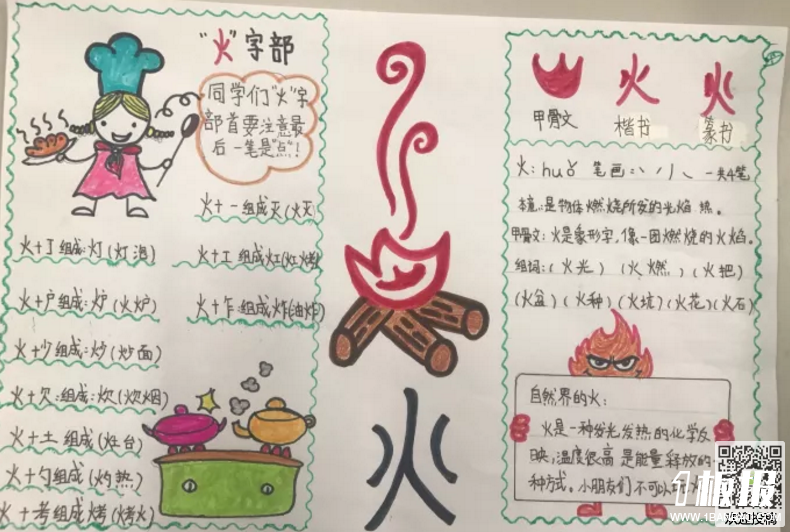 "火"字部
同学们"火"字
部首要注意最
后一笔是"点"！
火+一组成灭(火灭)
火+丁组成:灯(灯泡)
火+工组成灯(灯烤)
火+户组成:炉(火炉)
火+乍:组成炸(油炸)
火+少组成:炒(炒面)
火+欠:组成:炊(炊烟)
火+土 组成(灶台)
火+勺组成(灼热)
火+考组成烤(烤火)
火
火 火
甲骨文 楷书 篆书
火: huǒ 笔画:丶丿丿㇏ 一共4笔
本意:是物体燃烧所发的光焰 热。
甲骨文:火是象形字,像一团燃烧的火焰。
组词:(火光) (火燃) (火把)
(火盆)(火种)(火坑)(火花)(火石)
自然界的火:
火是一种发光发热的化学反
映,温度很高 是能量释放的
种方式。小朋友们不可以
1板报
WWW.1BANBAO.COM